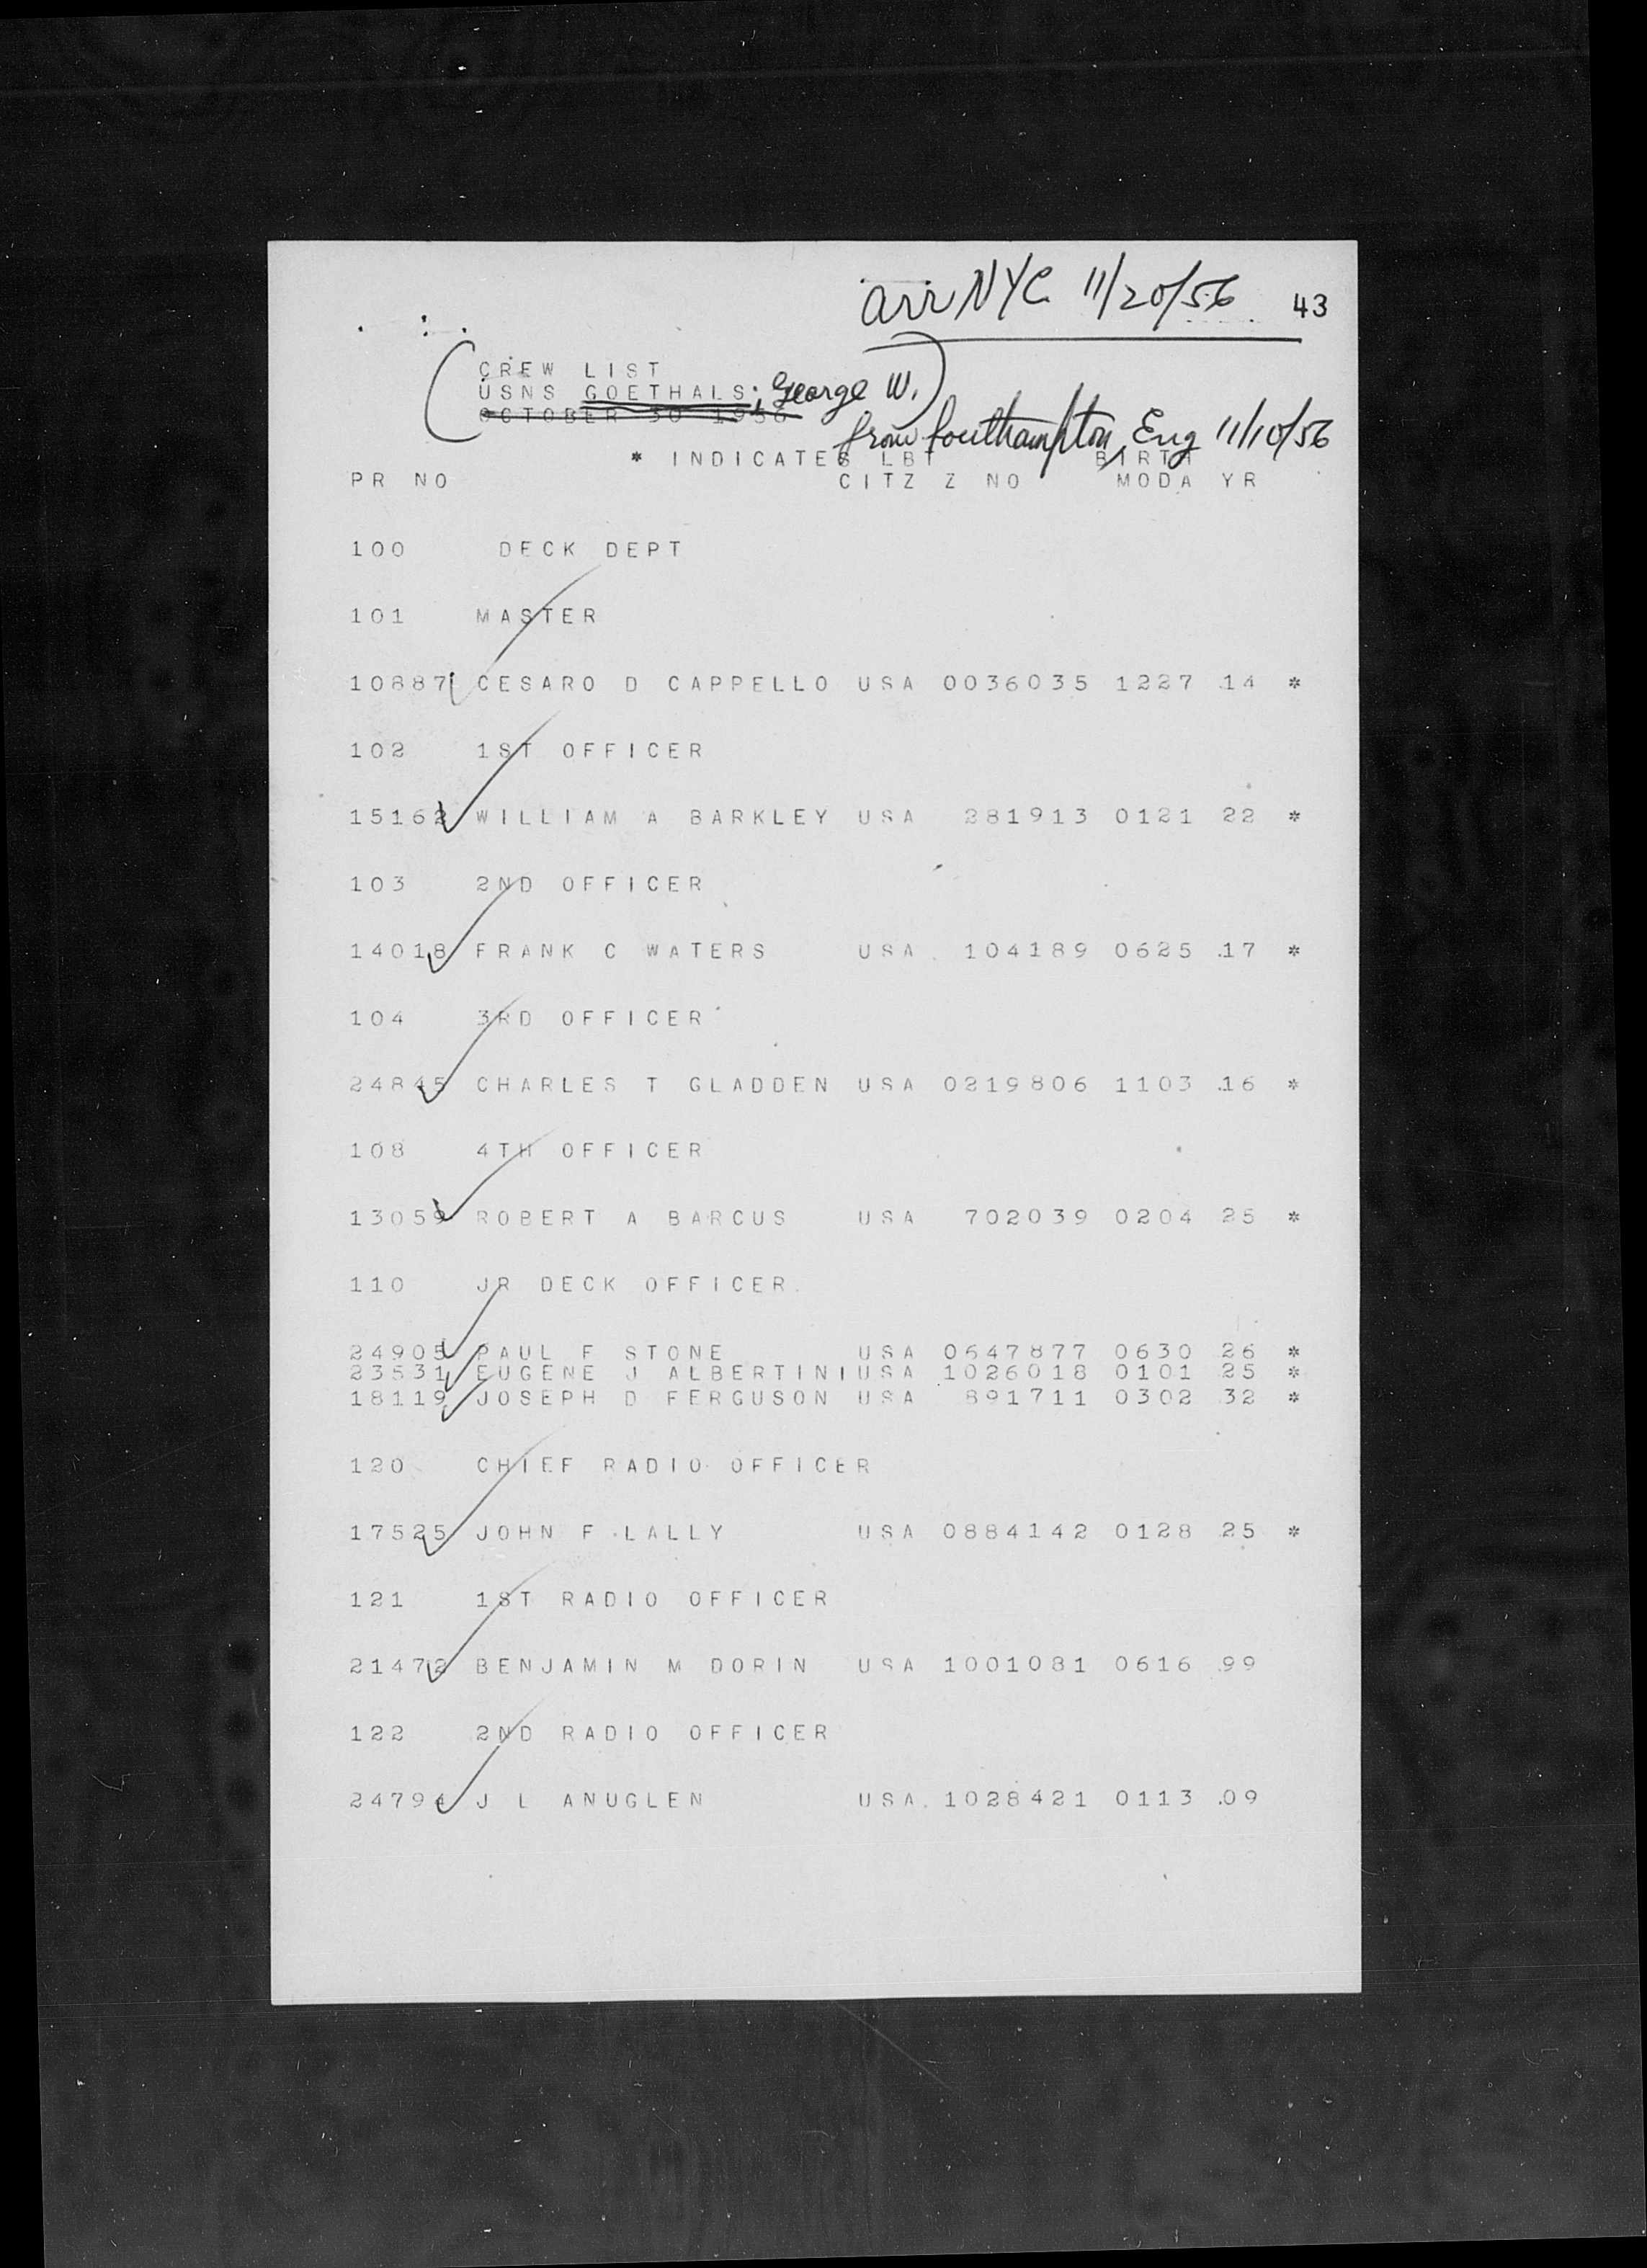 arr NYC 11/20/56 43
CREW LIST
USNS GOETHALS; George W.
OCTOBER 30 1956
from Southampton, Eng 11/10/56
* INDICATES LBT BIRTH
PR NO CITZ Z NO MODA YR
100 DECK DEPT
101 MASTER
10887 CESARO D CAPPELLO USA 0036035 1227 14 *
102 1ST OFFICER
15162 WILLIAM A BARKLEY USA 281913 0121 22 *
103 2ND OFFICER
14018 FRANK C WATERS USA 104189 0625 17 *
104 3RD OFFICER
24845 CHARLES T GLADDEN USA 0219806 1103 16 *
108 4TH OFFICER
13059 ROBERT A BARCUS USA 702039 0204 25 *
110 JR DECK OFFICER
24905 PAUL F STONE USA 0647877 0630 26 *
23531 EUGENE J ALBERTINI USA 1026018 0101 25 *
18119 JOSEPH D FERGUSON USA 891711 0302 32 *
120 CHIEF RADIO OFFICER
17525 JOHN F LALLY USA 0884142 0128 25 *
121 1ST RADIO OFFICER
21472 BENJAMIN M DORIN USA 1001081 0616 99
122 2ND RADIO OFFICER
24794 J L ANUGLEN USA 1028421 0113 09